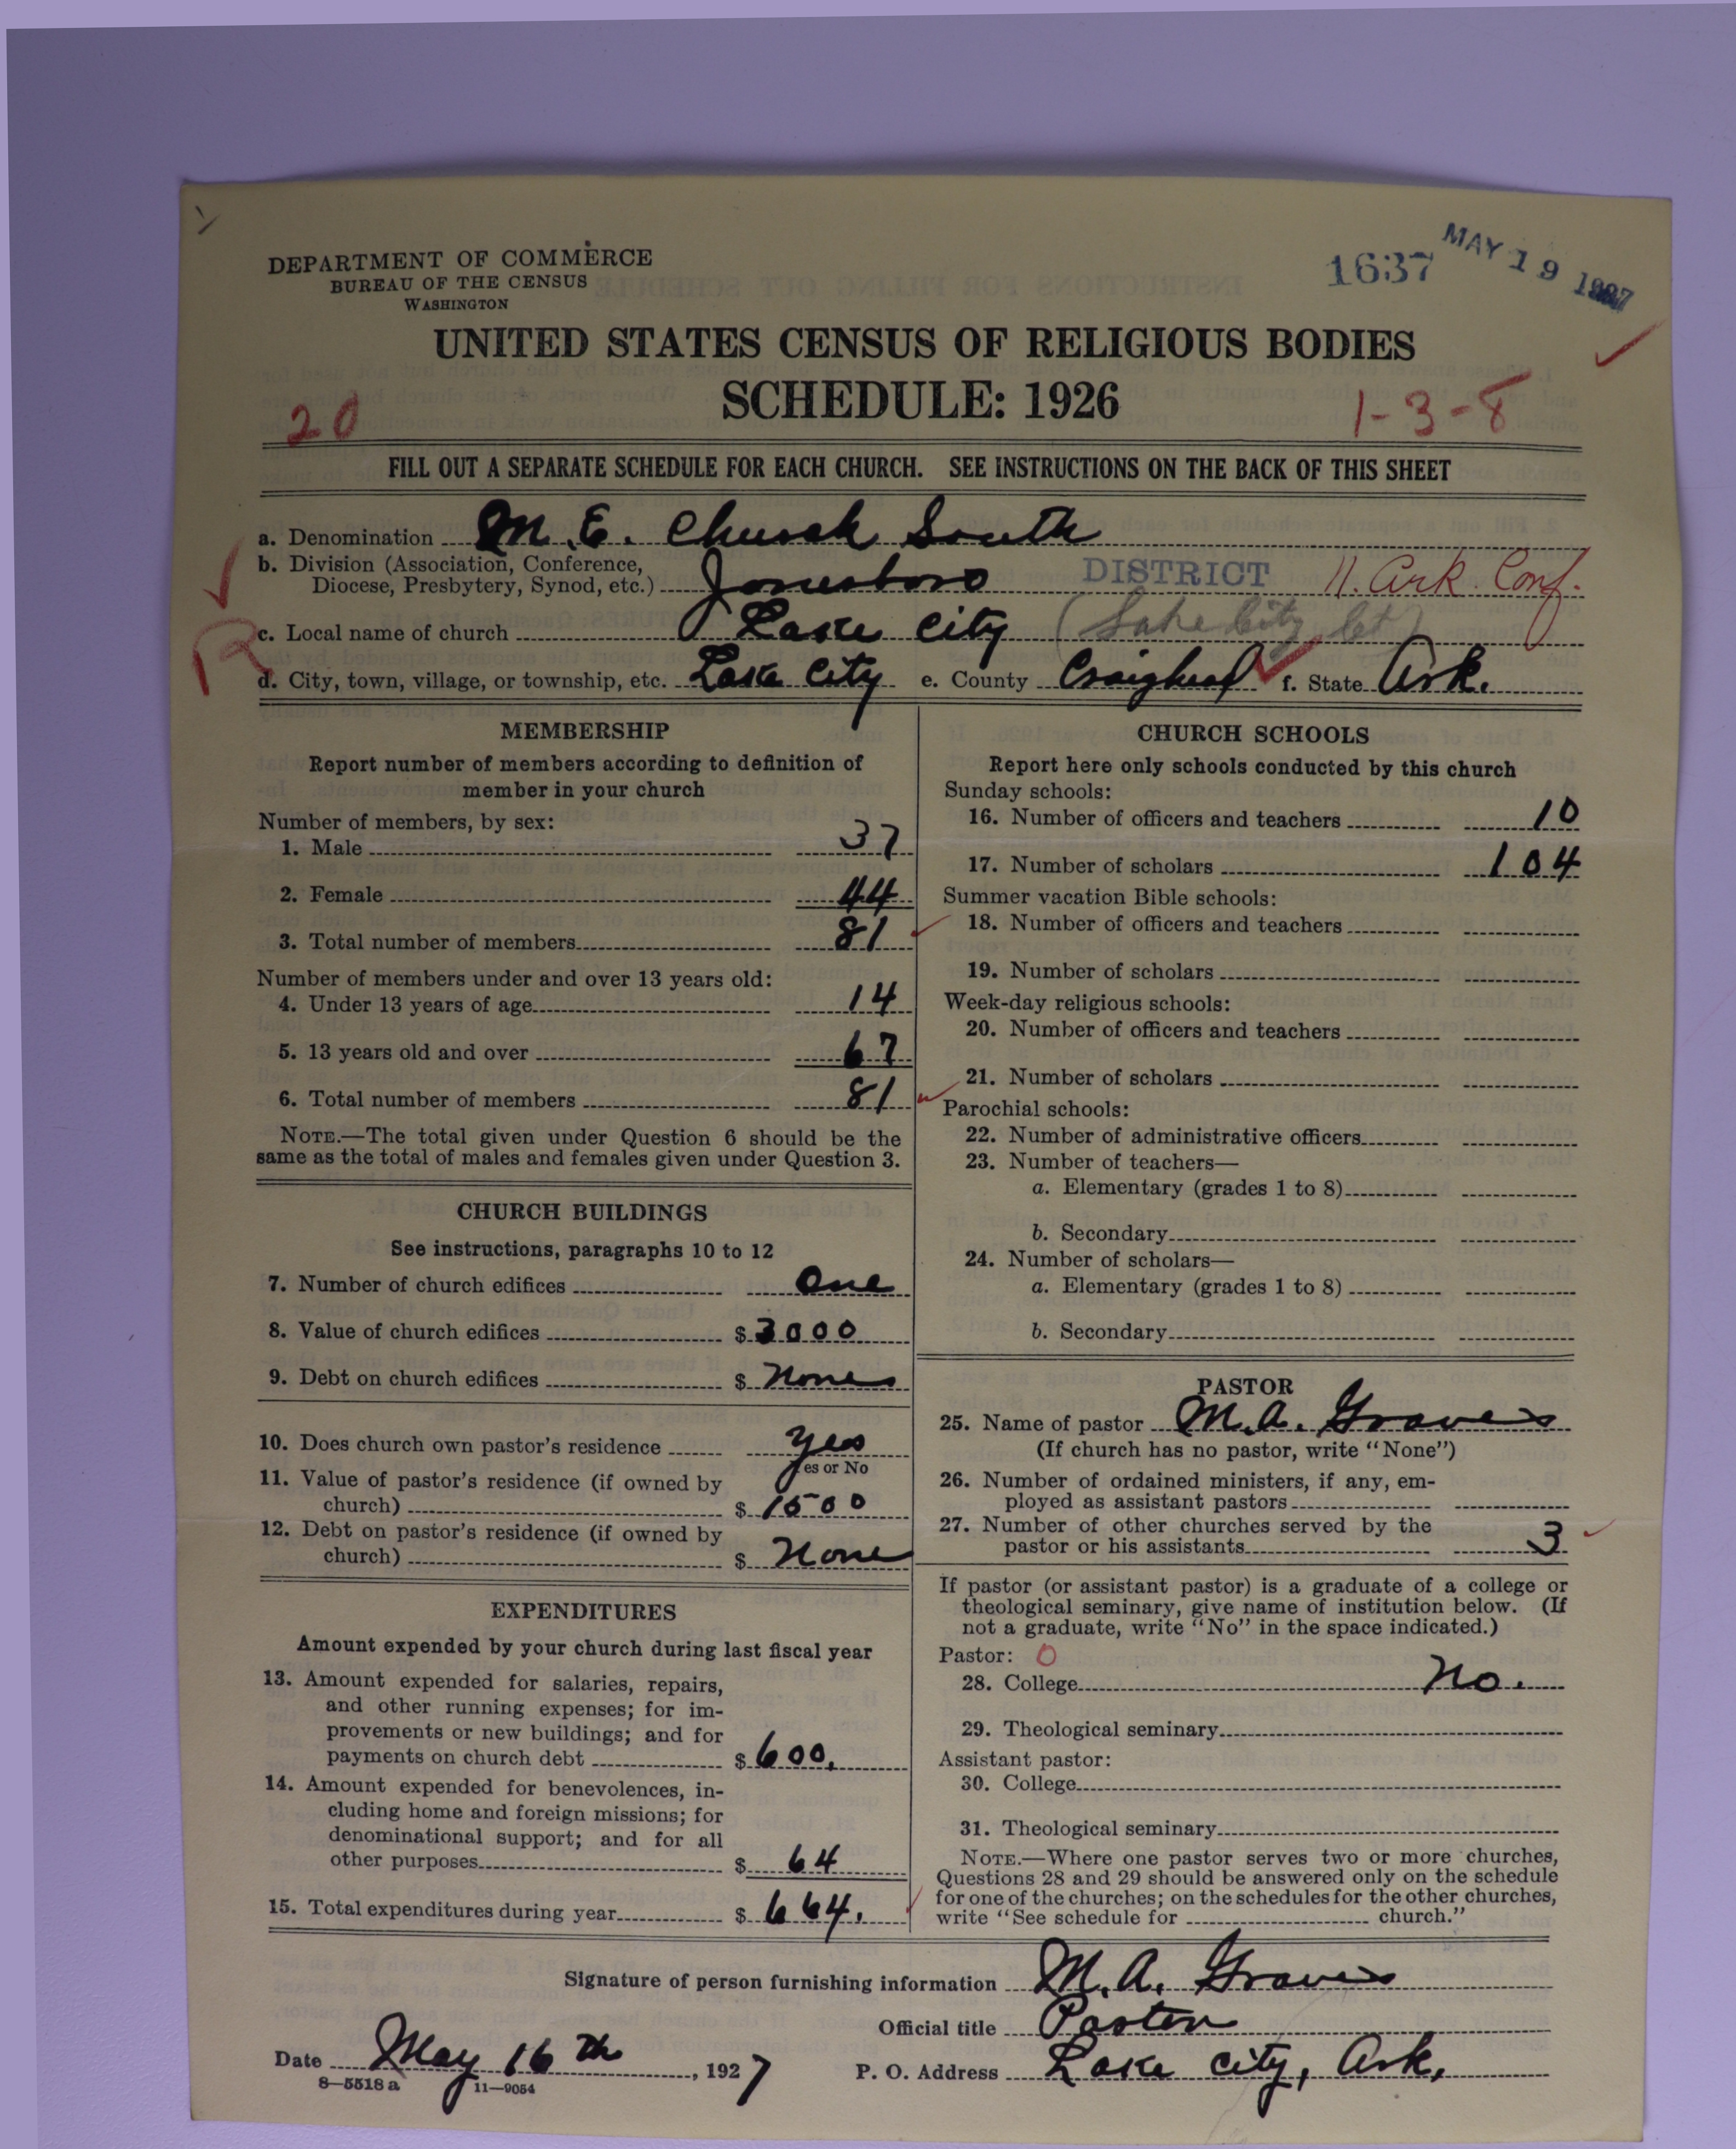 DEPARTMENT OF COMMERCE
BUREAU OF THE CENSUS
WASHINGTON
1637
MAY 19 1927
UNITED STATES CENSUS OF RELIGIOUS BODIES
SCHEDULE: 1926
20
1-3-8
FILL OUT A SEPARATE SCHEDULE FOR EACH CHURCH. SEE INSTRUCTIONS ON THE BACK OF THIS SHEET
a. Denomination M. E. Church South
b. Division (Association, Conference,
Diocese, Presbytery, Synod, etc.) Jonesboro DISTRICT N. Ark. Conf.
c. Local name of church Lake City (Lake City, Ct)
R
d. City, town, village, or township, etc. Lake City e. County Craighead f. State Ark.
MEMBERSHIP
Report number of members according to definition of
member in your church
Number of members, by sex:
1. Male 37
2. Female 44
3. Total number of members 81
Number of members under and over 13 years old:
4. Under 13 years of age 14
5. 13 years old and over 67
6. Total number of members 81
NOTE.—The total given under Question 6 should be the
same as the total of males and females given under Question 3.
CHURCH BUILDINGS
See instructions, paragraphs 10 to 12
7. Number of church edifices One
8. Value of church edifices $3000
9. Debt on church edifices $ None
10. Does church own pastor's residence Yes
Yes or No
11. Value of pastor's residence (if owned by
church) $1500
12. Debt on pastor's residence (if owned by
church) $ None
EXPENDITURES
Amount expended by your church during last fiscal year
13. Amount expended for salaries, repairs,
and other running expenses; for im-
provements or new buildings; and for
payments on church debt $600.
14. Amount expended for benevolences, in-
cluding home and foreign missions; for
denominational support; and for all
other purposes $ 64
15. Total expenditures during year $ 664.
CHURCH SCHOOLS
Report here only schools conducted by this church
Sunday schools:
16. Number of officers and teachers 10
17. Number of scholars 104
Summer vacation Bible schools:
18. Number of officers and teachers
19. Number of scholars
Week-day religious schools:
20. Number of officers and teachers
21. Number of scholars
Parochial schools:
22. Number of administrative officers
23. Number of teachers—
a. Elementary (grades 1 to 8)
b. Secondary
24. Number of scholars—
a. Elementary (grades 1 to 8)
b. Secondary
PASTOR
25. Name of pastor M. A. Graves
(If church has no pastor, write "None")
26. Number of ordained ministers, if any, em-
ployed as assistant pastors
27. Number of other churches served by the
pastor or his assistants 3
If pastor (or assistant pastor) is a graduate of a college or
theological seminary, give name of institution below. (If
not a graduate, write "No" in the space indicated.)
Pastor: 0
28. College No.
29. Theological seminary
Assistant pastor:
30. College
31. Theological seminary
NOTE.—Where one pastor serves two or more churches,
Questions 28 and 29 should be answered only on the schedule
for one of the churches; on the schedules for the other churches,
write "See schedule for church."
Signature of person furnishing information M. A. Graves
Official title Pastor
Date May 16th, 1927 P. O. Address Lake City, Ark.
8—5518 a 11—9054